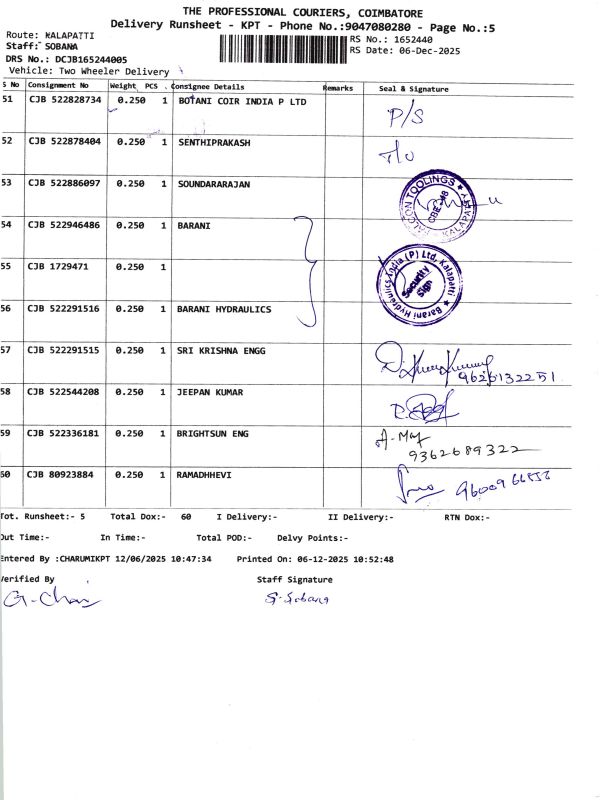 THE PROFESSIONAL COURIERS, COIMBATORE
Delivery Runsheet - KPT - Phone No.:9047080280 - Page No.:5
Route: KALAPATTI
RS No.: 1652440
Staff: SOBANA
RS Date: 06-Dec-2025
DRS No.: DCJB165244005
Vehicle: Two Wheeler Delivery
S No Consignment No Weight PCS Consignee Details Remarks Seal & Signature
51 CJB 522828734 0.250 1 BOTANI COIR INDIA P LTD P/S
52 CJB 522878404 0.250 1 SENTHIPRAKASH
53 CJB 522886097 0.250 1 SOUNDARARAJAN
FALCON TOOLINGS ★ KALAPATTI
CBE-48
54 CJB 522946486 0.250 1 BARANI
55 CJB 1729471 0.250 1
Barani Hydraulics India (P) Ltd, Kalapatti ★
Security
Sign
56 CJB 522291516 0.250 1 BARANI HYDRAULICS
57 CJB 522291515 0.250 1 SRI KRISHNA ENGG
9626132251
58 CJB 522544208 0.250 1 JEEPAN KUMAR
59 CJB 522336181 0.250 1 BRIGHTSUN ENG
9362689322
60 CJB 80923884 0.250 1 RAMADHHEVI
Tot. Runsheet:- 5 Total Dox:- 60 I Delivery:- II Delivery:- RTN Dox:-
Out Time:- In Time:- Total POD:- Delvy Points:-
Entered By :CHARUMIKPT 12/06/2025 10:47:34 Printed On: 06-12-2025 10:52:48
Verified By Staff Signature
G-Char S-Sobana